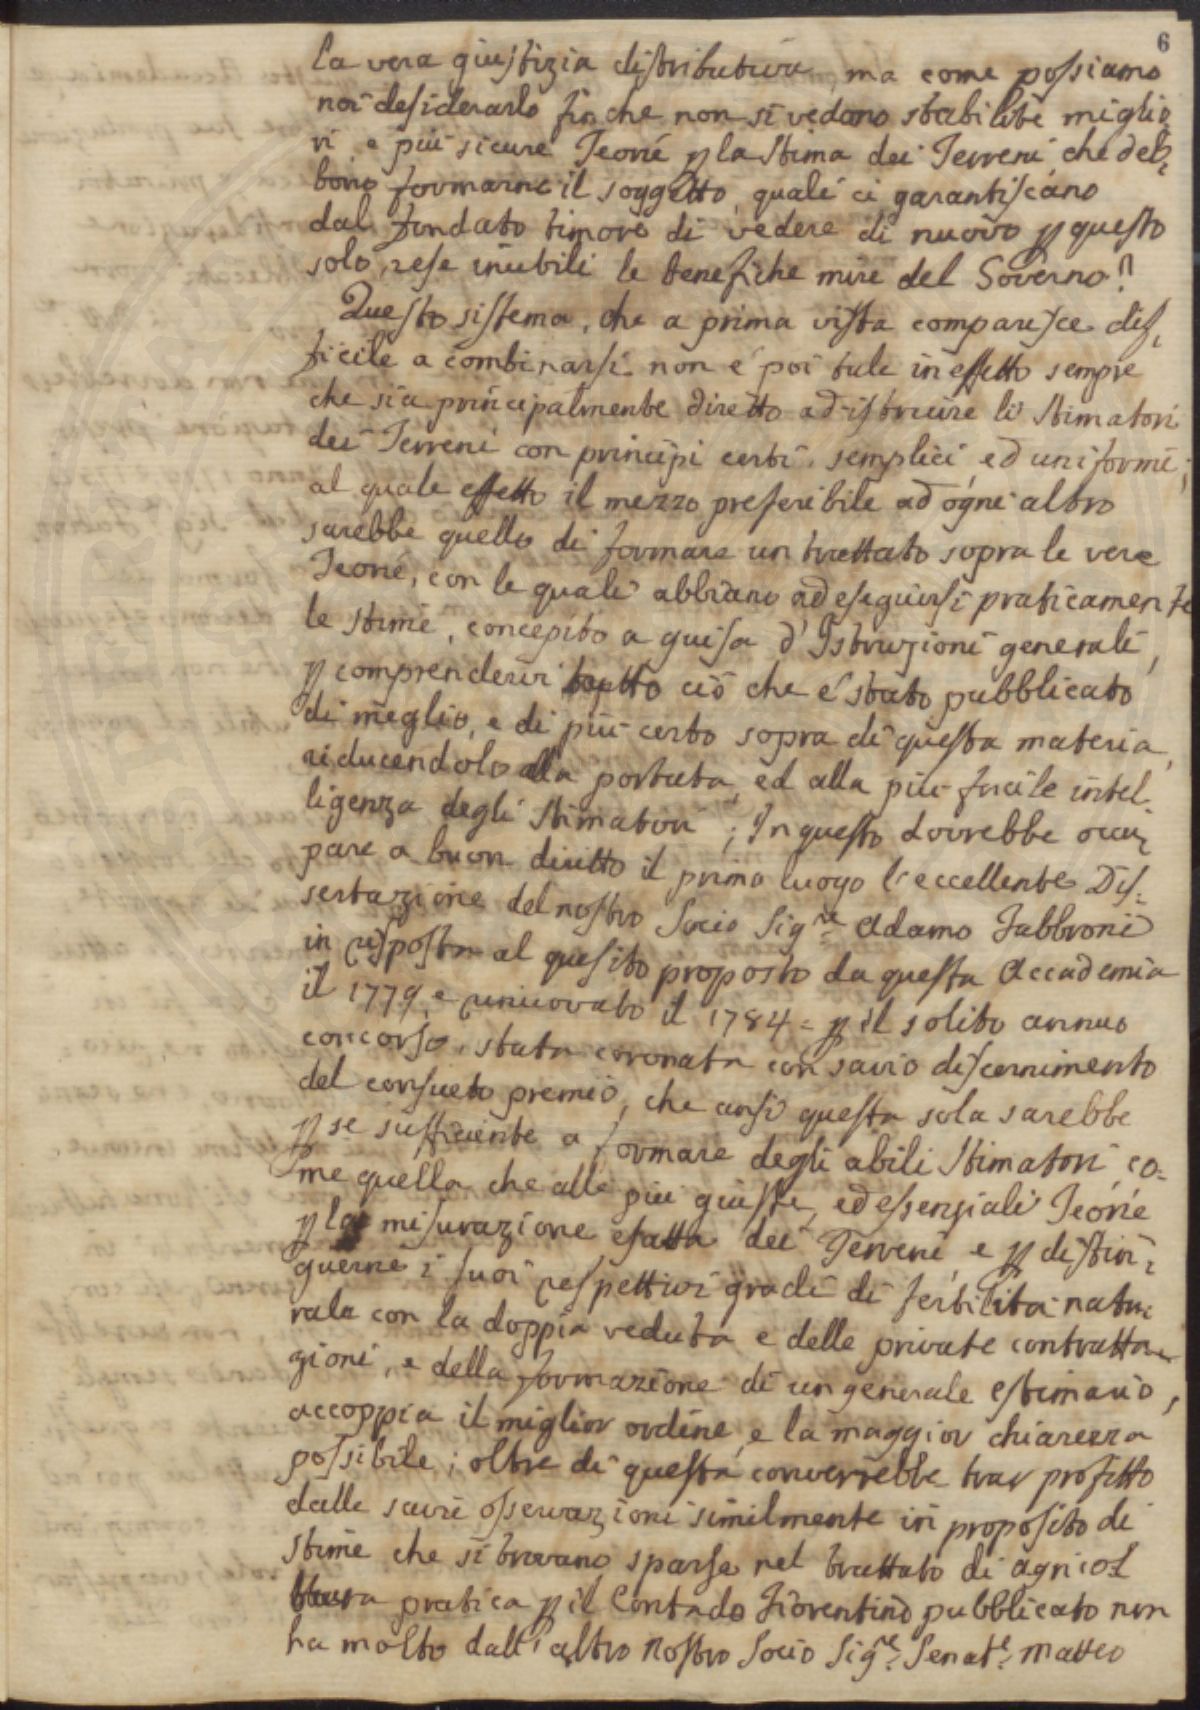 6
la vera giustizia distributiva, ma come possiamo
noi desiderarlo finche non si vedano stabilite miglio
ri, e più sicure Teorie p la Stima dei Terreni che deb=
bono formarne il soggetto, quali ci garantiscano
dal fondato timore di vedere di nuovo p questo
solo, rese inutili le benefiche mire del Governo?
Questo sistema, che a prima vista comparisce dif=
ficile a combinarsi non è poi tale in effetto sempre
che sia principalmente diretto ad istruire li Stimatori
dei Terreni con principi certi, semplici, ed uniformi;
al quale effetto il mezzo preferibile ad ogni altro
sarebbe quello di formare un trattato sopra le vere
Teorie, con le quali abbiano ad eseguirsi praticamente
le stime, concepito a guisa d'Istruzioni generali,
p comprendervi tutto ciò che è stato pubblicato
di meglio, e di più certo sopra di questa materia,
riducendolo alla portata, ed alla più facile intel=
ligenza degli Stimatori; In questo dovrebbe occu=
pare a buon diritto il primo luogo l'eccellente Dis=
sertazione del nostro Socio Sig.re Adamo Fabbroni
in risposta al quesito proposto da questa Accademia
il 1779, e rinnovato il 1784 = p il solito annuo
concorso, stata coronata con savio discernimento
del consueto premio, che ansi questa sola sarebbe
p se sufficiente a formare degli abili Stimatori co=
me quella che alle più giuste, ed essenziali Teorie
p la misurazione esatta dei Terreni, e p distin=
guerne i suoi respettivi gradi di fertilità natu=
rale con la doppia veduta e delle private contratta=
zioni, e della formazione di un generale estimario,
accoppia il miglior ordine, e la maggior chiarezza
possibile; oltre di questa converrebbe trar profitto
dalle savie osservazioni similmente in proposito di
stime che si trovano sparse nel trattato di agricol
tura pratica p il Contado Fiorentino pubblicato non
ha molto dall'altro nostro Socio Sig.re Senat.e Matteo